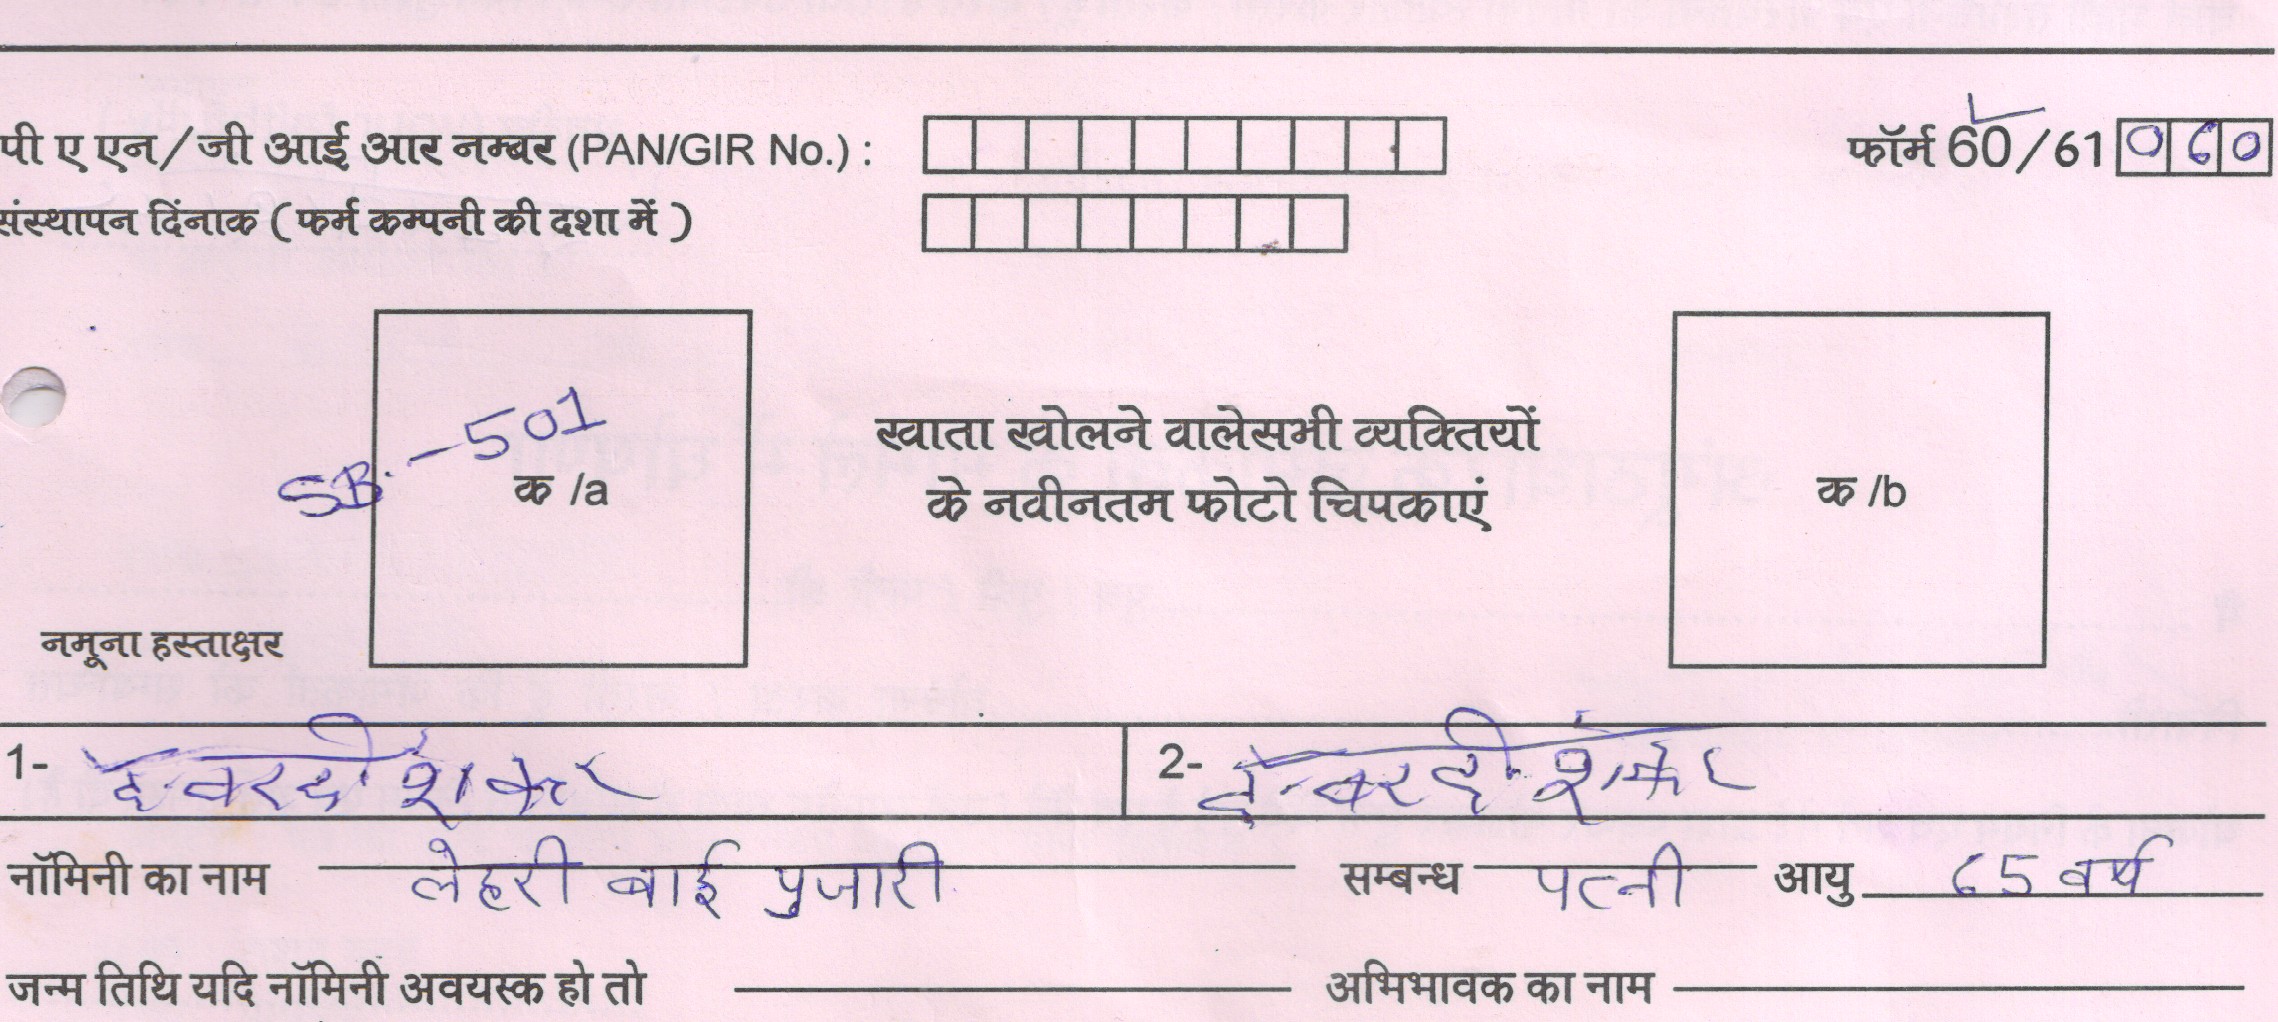 पी ए एन/जी आई आर नम्बर (PAN/GIR No.) : फॉर्म 60/61 060
संस्थापन दिंनाक ( फर्म कम्पनी की दशा में )
SB. - 501
क /a
खाता खोलने वालेसभी व्यक्तियों
के नवीनतम फोटो चिपकाएं
क /b
नमूना हस्ताक्षर
1- शंकर 2- शंकर
नॉमिनी का नाम लेहरी बाई पुजारी सम्बन्ध पत्नी आयु 65 वर्ष
जन्म तिथि यदि नॉमिनी अवयस्क हो तो अभिभावक का नाम